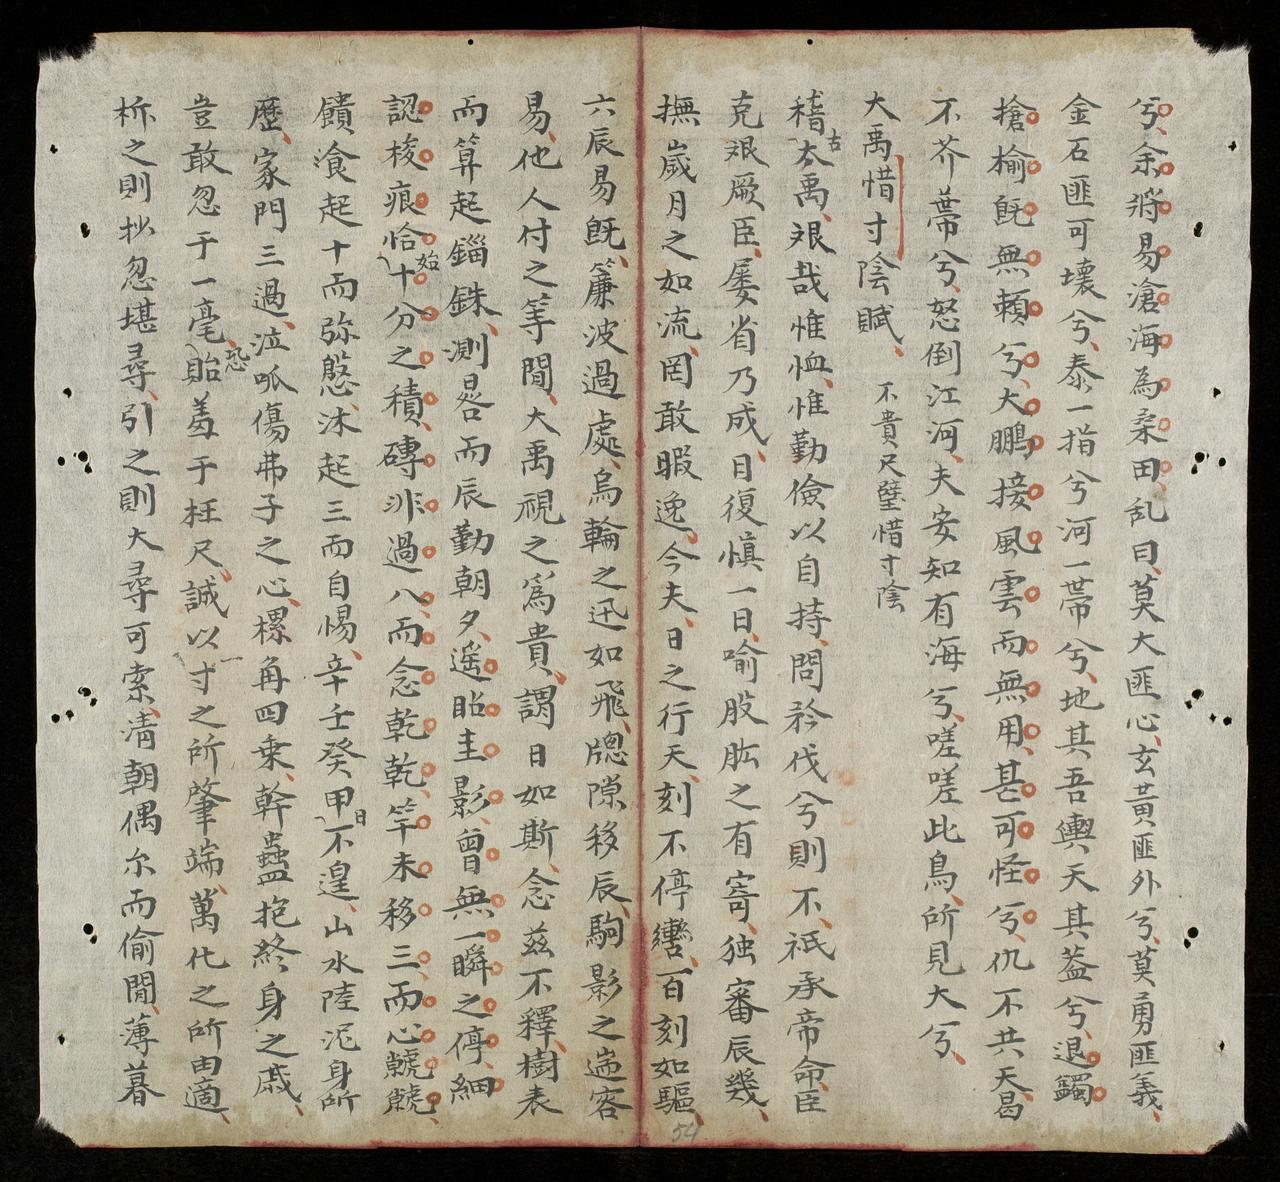 兮、余將易滄海為桑田、乱曰、莫大匪心、玄黃匪外兮、莫勇匪義、
金石匪可壞兮、泰一指兮河一帶兮、地其吾輿天其蓋兮、退鷁
搶榆既無賴兮、大鵬接風雲而無用、甚可怪兮、仇不共天曷
不芥蔕兮、怒倒江河、夫安知有海兮、嗟嗟此鳥、所見大兮、
大禹惜寸陰賦、 不貴尺璧惜寸陰
稽古大禹、艰哉惟恤、惟勤儉以自持、問矜伐兮則不、祇承帝命、臣
克艰厥臣、屡省乃成、日復慎一日、喻股肱之有寄、独審辰幾、
撫歲月之如流、罔敢暇逸、今夫、日之行天、刻不停轡、百刻如驅
六辰易既、簾波過處、烏輪之迅如飛、牕隙移辰、駒影之遄容
易、他人付之等閒、大禹視之爲貴、謂日如斯、念茲不釋、樹表
而算起錙銖、測晷而辰勤朝夕、遥昭圭影、曾無一瞬之停、細
認梭痕、恰始十分之積、磚非過八、而念乾乾、竿未移三、而心虩虩、
饋飡起十而弥慇、沐起三而自惕、辛壬癸甲日不遑、山水陸泥身所
歷、家門三過、泣呱傷弗子之心、樏角四乗、幹蠱抱終身之戚、
豈敢忽于一毫、恐貽羞于枉尺、誠以一寸之所肇端、萬化之所由適、
析之則抄忽堪尋、引之則大尋可索、清朝偶尔而偷閒、薄暮
54